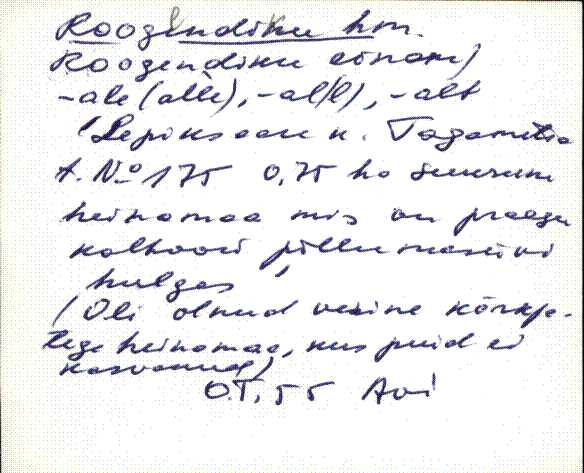 Roogendiku hm.
Roogendiku einam)
-ale (alle), -al(l), -alt
(Lepiksaare k. Tagametsa
A. No 175 0,75 ha suurune
heinamaa mis on praegu
kolhoosi põllumassiivi
hulgas,
(Oli olnud vesine kõrkja-
tega heinamaa, kus puid ei
kasvanud)
O.T. 55 Avi